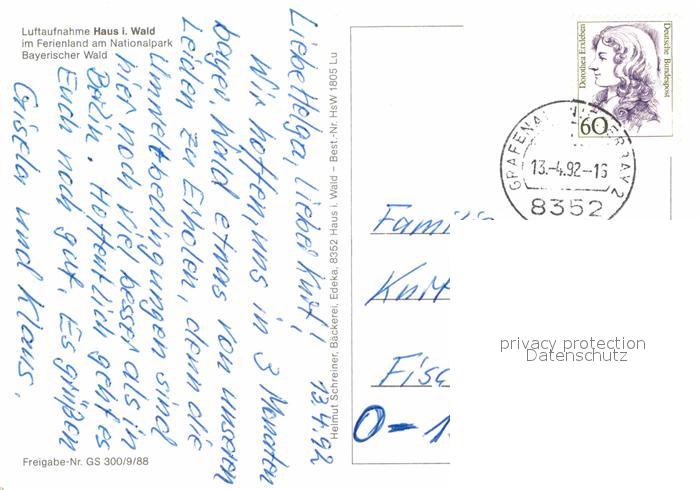 Luftaufnahme Haus i. Wald
im Ferienland am Nationalpark
Bayerischer Wald
13.4.92
Liebe Helga, lieber Kurt!
Wir hoffen, uns in 3 Monaten
bayer. Wald etwas von unseren
Leiden zu erholen, denn die
Umweltbedingungen sind
hier noch viel besser als in
Berlin. Hoffentlich geht es
Euch noch gut. Es grüßen
Gisela und Klaus.
Freigabe-Nr. GS 300/9/88
Helmut Schreiner, Bäckerei, Edeka, 8352 Haus i. Wald – Best.-Nr. HsW 1805 Lu
Dorothea Erxleben
Deutsche Bundespost
60
GRAFENAU
13.-4.92-16
8352
Famili
Kurt
Fisc
O-1
privacy protection
Datenschutz